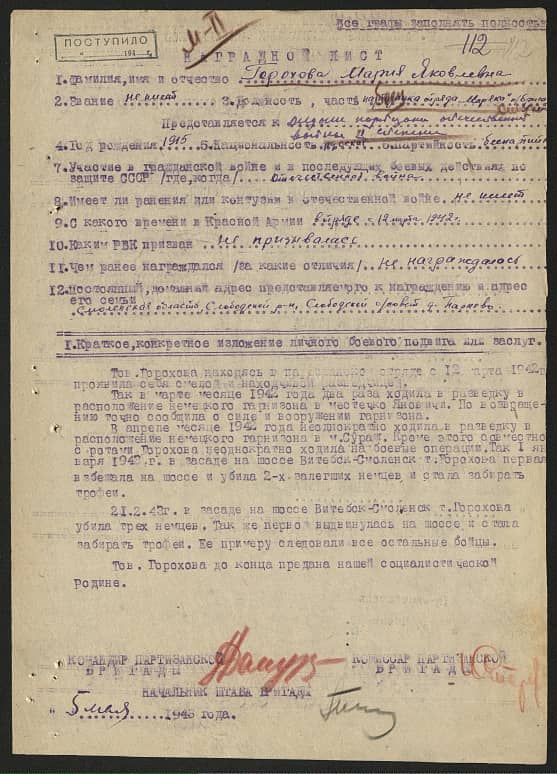 Все графы заполнять полностью
ПОСТУПИЛО
194 г.
М-II
112
НАГРАДНОЙ ЛИСТ
1.Фамилия,имя и отчество Горохова Мария Яковлевна
2.Звание не имеет 3.Должность, часть отряда "Моряка"
Представляется к ордену отечественной
войны II степени
4.Год рождения 1915 5.Национальность 6.Партийность
7.Участие в гражданской войне и в последующих боевых действиях по
защите СССР /где,когда/ отечественная война
8.Имеет ли ранения или контузии в отечественной войне не имеет
9.С какого времени в Красной Армии в отряде с 12 марта 1942г
10.Каким РВК призван не призывалась
11.Чем ранее награждался /за какие отличия/ не награждалась
12.Постоянный,домашний адрес представляемого к награждению и адрес
его семьи
Смоленская область Слободской р-н, Слободской с/совет д.
I.Краткое,конкретное изложение личного боевого подвига или заслуг.
Тов.Горохова находясь в партизанском отряде с 12 марта 1942г
проявила себя смелой и находчивой разведчицей.
Так в марте месяце 1942 года два раза ходила в разведку в
расположение немецкого гарнизона в местечко Яновичи. По возвраще-
нию точно сообщила о силе и вооружении гарнизона.
В апреле месяце 1942 года неоднократно ходила в разведку в
расположение немецкого гарнизона в м.Сураж. Кроме этого совместно
с ротами Горохова неоднократно ходила на боевые операции.Так 1 ян
варя 1942.г. в засаде на шоссе Витебск-Смоленск т.Горохова первая
взбежала на шоссе и убила 2-х залегших немцев и стала забирать
трофеи.
21.2.43г. в засаде на шоссе Витебск-Смоленск т.Горохова
убила трех немцев. Так же первой выдвинулась на шоссе и стала
забирать трофеи. Ее примеру следовали все остальные бойцы.
Тов. Горохова до конца предана нашей социалистической
родине.
КОМАНДИР ПАРТИЗАНСКОЙ КОМИССАР ПАРТИЗАНСКОЙ
БРИГАДЫ БРИГАДЫ
НАЧАЛЬНИК ШТАБА БРИГАДЫ
"5 мая 1943 года.